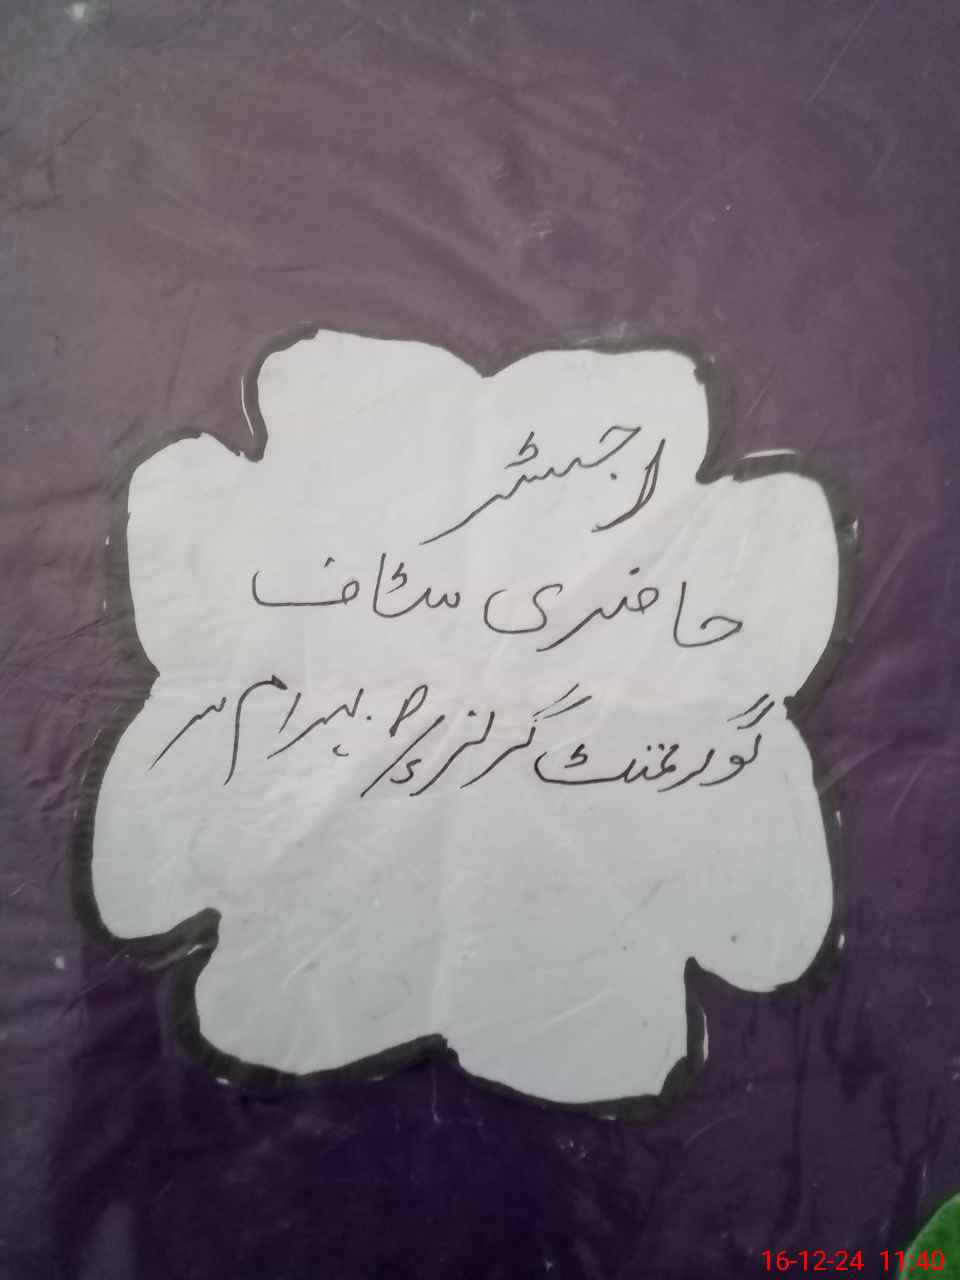 رجسٹر
حاضری سٹاف
گورنمنٹ گرلز بہرام سر
16-12-24 11:40